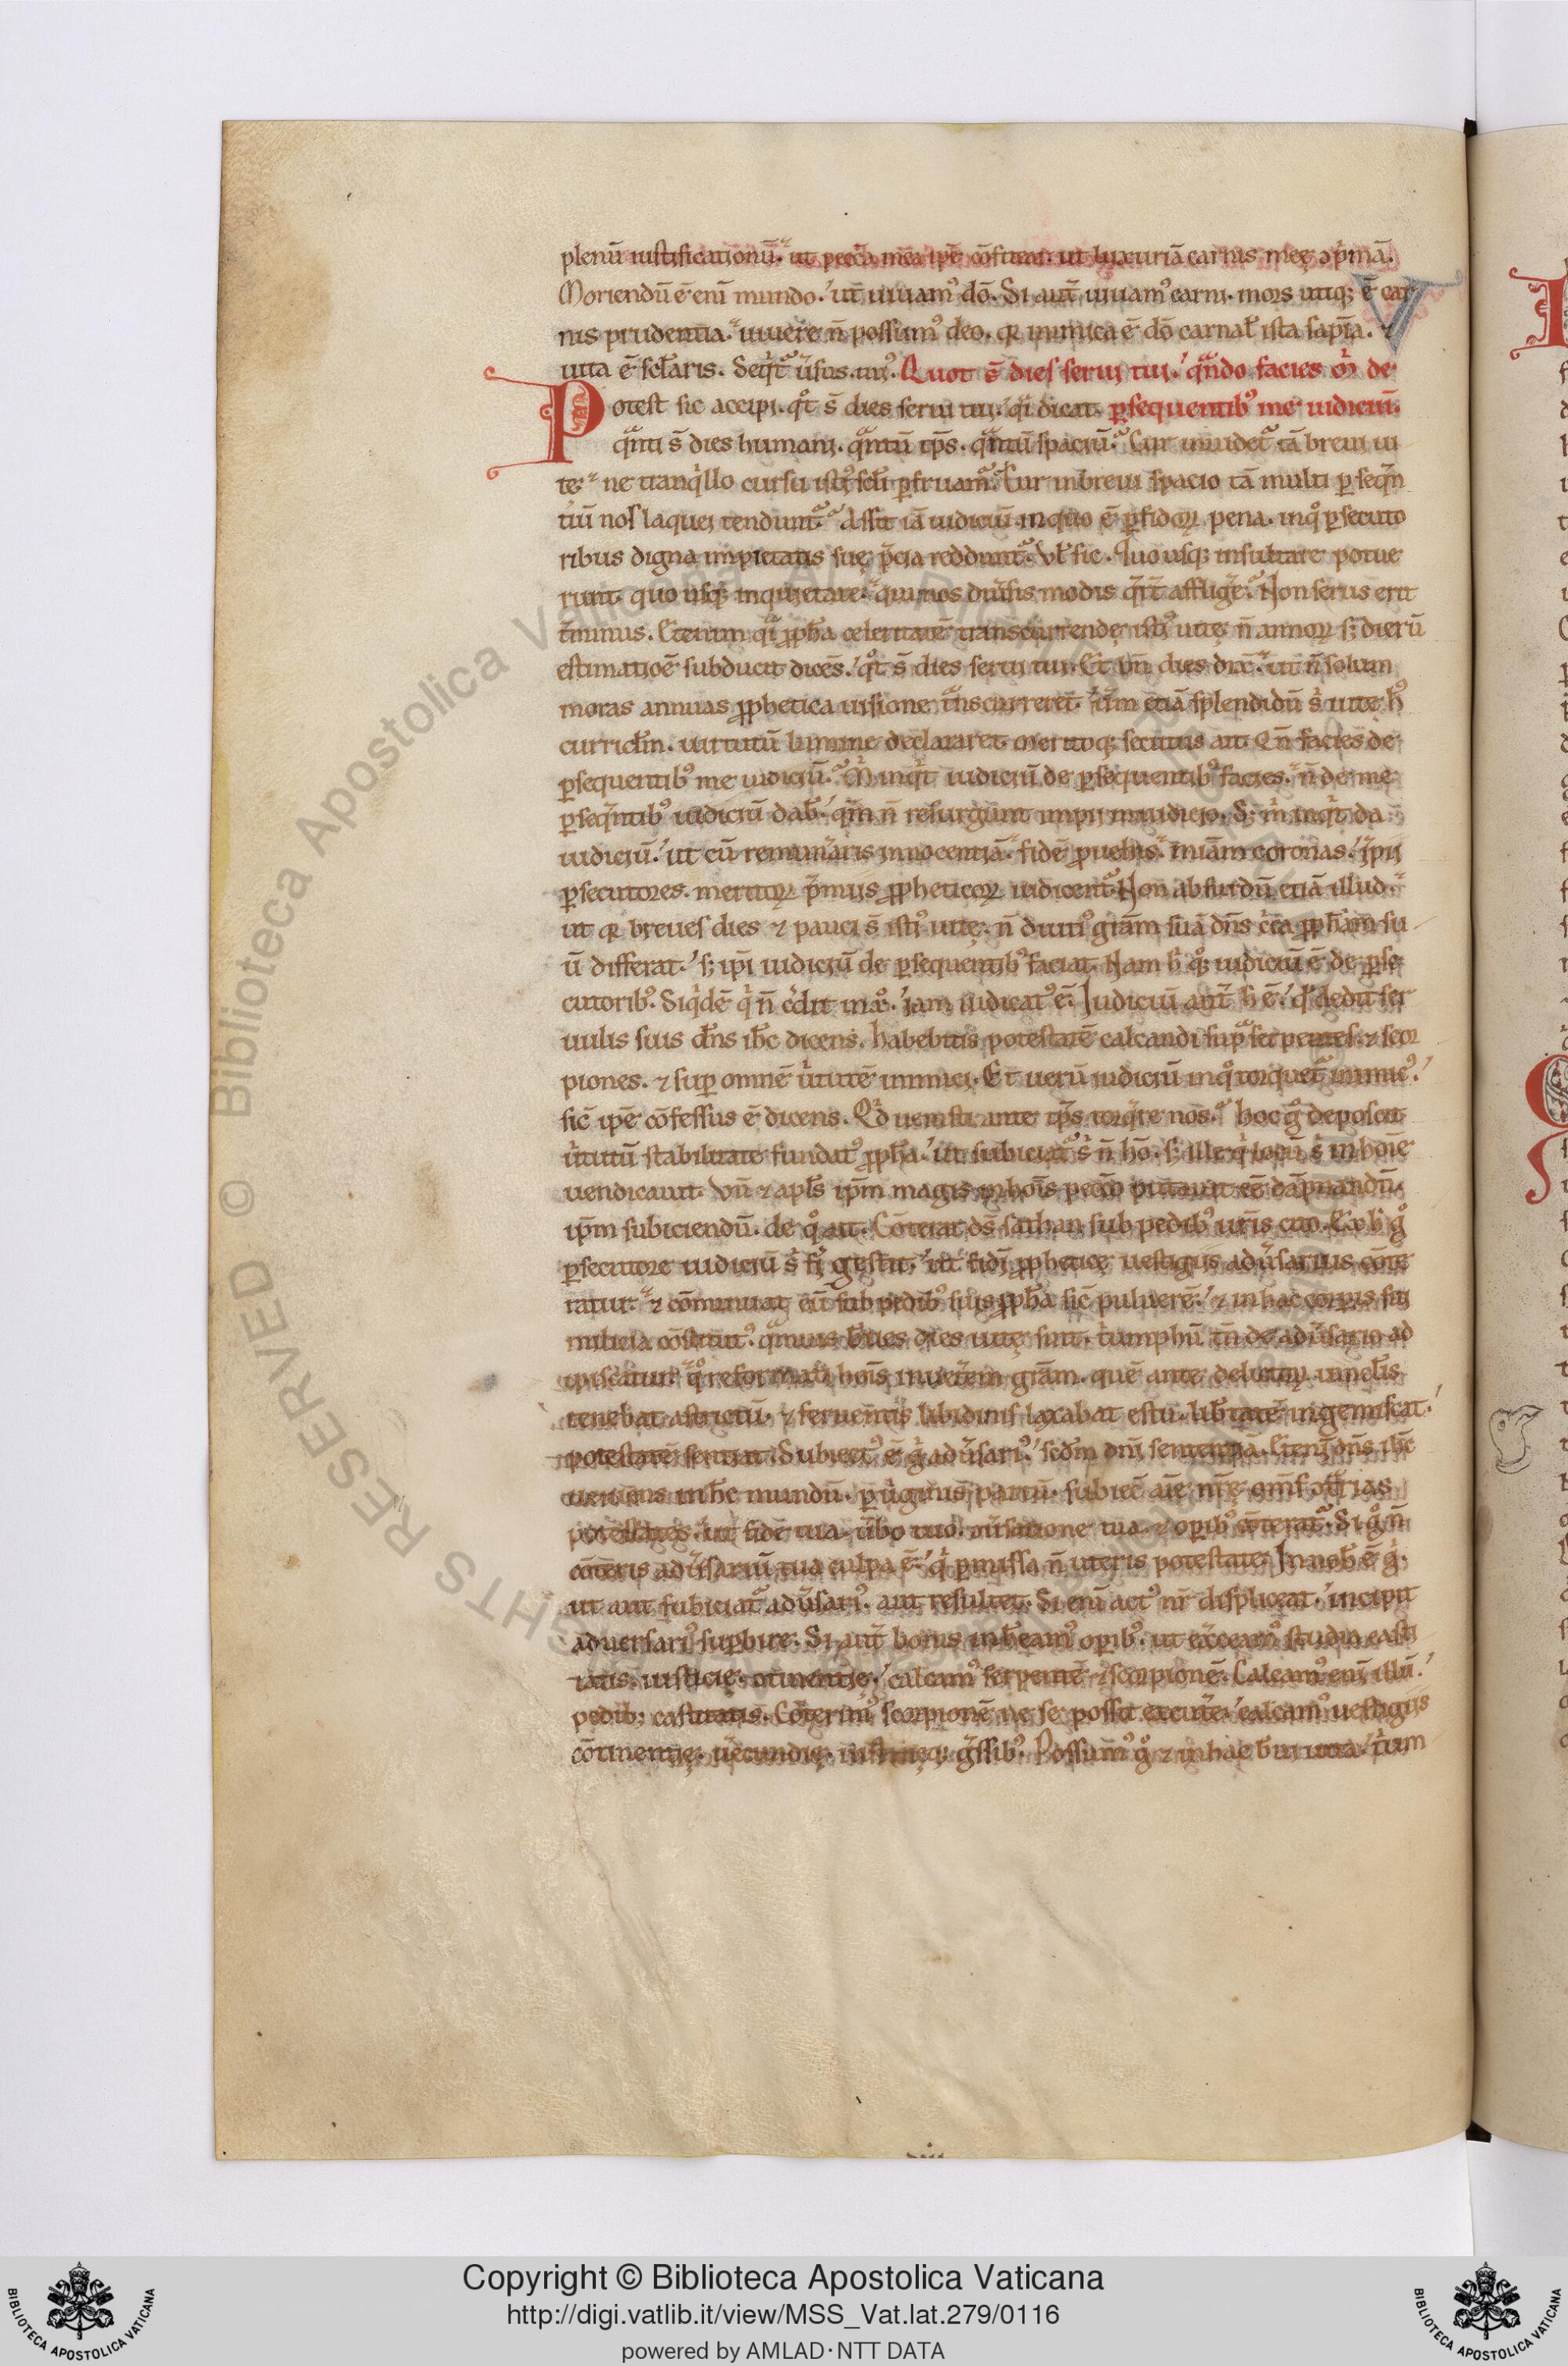 plenū iustificationū. ut pecc̄a mea ipē cōfitear. ut luxuriā carnis meę op̄mā.
Moriendū ē eni mundo. ut uiuamꝰ dō. Si aut̄ uiuamꝰ carni. mors utiq; ē car
nis prudentia. uiuere n̄ possumꝰ deo. qr inimica ē dō carnal̄ ista sapīa. 
uita ē scl̄aris. Seqͥt᷑ u̓sus .iiiꝰ. Quot s̄ dies serui tui. qn̄do facies m̄ de
otest sic accipi. qͦt s̄ dies serui tui. qͣi dicat. ꝑsequentibꝰ me iudiciū.
P qͣnti s̄ dies humani. qͣntū tp̄s. qͣntū spaciū. Cur inuidet᷑ tā breui ui
te. ne tranqͥllo cursu istiꝰ scl̄i ꝑfruam᷑. Cur in breui spacio tā multi ꝑseqn̄
tiū nos laquei tendunt᷑. Assit iā iudiciū in quo ē ꝑfidoꝝ pena. in qͦ ꝑsecuto
ribus digna impietatis suę p̄cia reddunt᷑. Vl̄ sic. Quo usq; insultare potue
runt. quo usq; inquietare. qui nos diu̓sis modis qͣr̄t afflige᷑. Non serus erit
t̓minus. Etenim qͣi ꝓph̄a celeritatē transcurrendę istiꝰ uitę n̄ annoꝝ s; dierū
estimatioē subducit dicēs. qͦt s̄ dies serui tui. Et bn̄ dies dix̄. ut n̄ solum
moras annuas ꝓphetica uisione tͣnscurreret. u̓m etiā splendidū sͥ uitę hꝰ
curricl̄m. uirtutū lumine declararet. Meritoq; secutus ait. Qn̄ facies de
ꝑsequentibꝰ me iudiciū. M̄ inqͥt iudiciū de ꝑsequentibꝰ facies. n̄ de me
ꝑseqn̄tibꝰ iudiciū dab̄. qm̄ n̄ resurgunt impii in iudicio. S; mͥ inqͥt da
iudiciū. ut cū remun̓aris innocentiā. fidē ꝓuehis. iniām coronas. ip̄i
ꝑsecutores. meritoꝝ p̄miis ꝓpheticoꝝ iudicent᷑. Non absurdū etiā illud.
ut qr breues dies ⁊ pauci s̄ istiꝰ uitę. n̄ diutiꝰ grām suā dn̄s c̓ca ꝓph̄am su
ū differat. s; ip̄i iudiciū de ꝑsequentibꝰ faciat. Nam h̄ qͦ; iudiciū ē de ꝑse
cutoribꝰ. Siqͥdē qͥ n̄ c̓dit in xͦ. iam iudicatꝰ ē. Iudiciū aut̄ h̄ ē. qͦd dedit ser
uulis suis dn̄s ih̄c dicens. habebitis potestatē calcandi supͣ serpentes. ⁊ scor
piones. ⁊ suꝑ omnē u̓tutē inimici. Et uerū iudiciū in qͦ torquet᷑ inimicꝰ.
sic̄ ipē cōfessus ē dicens. Qͥd uenisti ante tp̄s torqͣre nos. hoc gͦ deposcit
u̓tutū stabilitate fundatꝰ ꝓph̄a. ut subiciat᷑ sͥ n̄ hō. s; ille qͥ locū sͥ in hoīe
uendicauit. Vn̄ ⁊ apl̄s ip̄m magis in hoīs pecc̄o putauit eē dāpnandū.
ip̄m subiciendū. de qͦ ait. Cōterat dȿ sathan sub pedibꝰ uris̄ cito. Ex h̄ gͦ
ꝑsecutore iudiciū sͥ fiͥ gestit. ut fidi ꝓpheticę uestigiis adu̓sarius cōte
ratur. ⁊ cōminuat eū sub pedibꝰ suis ꝓph̄a sic̄ puluerē. ⁊ in hac corpis sui
milicia cōstitutꝰ. qͣmuis b̓ues dies uitę sint. tͥumphū tn̄ de adu̓sario ad
ipiscatur qͦ reformati hoīs inueteri grām. quē ante delictoꝝ uincl̄is
tenebat astrictū. ⁊ feruentis libidinis laxabat estu. lib̄tatē ingemiscat.
potestatē sentiat. Subiectꝰ ē gͥ adu̓sariꝰ. scd̄m dn̄i sententiā. Etenī dn̄s ih̄c
ueniens in h̄c mundū. ꝑ u̓ginis partū. subiec̄ aīe nr̄ę oms̄ ot̄rias
potestates. ut fide tua. u̓bo tuo. ou̓satione tua. ⁊ opibꝰ cōterat᷑. Si gͦ n̄
cōteris adu̓sariū tua culpa ē. qͥ ꝑmissa n̄ uteris potestate. In nob̄ ē gͥ.
ut aut subiciat᷑ adu̓sariꝰ. aut resultet. Si enī actꝰ nr̄ displiceat. incipit
aduersariꝰ suꝑbire. Si aut̄ bonis inh̓eamꝰ opibꝰ. ut ex̓ceamꝰ studia casti
tatis. iusticię. otinentię. calcamꝰ serpentē ⁊ scorpionē. Calcamꝰ enī illū.
pedib; castitatis. Cōterimꝰ scorpionē ne se possit excute᷑. calcamꝰ uestigiis
cōtinentię. u̓ecundię. iustitięq; gͣssibꝰ. Possumꝰ gͦ ⁊ in hac b̓ui uita. tͥum
Copyright © Biblioteca Apostolica Vaticana
http://digi.vatlib.it/view/MSS_Vat.lat.279/0116
powered by AMLAD·NTT DATA